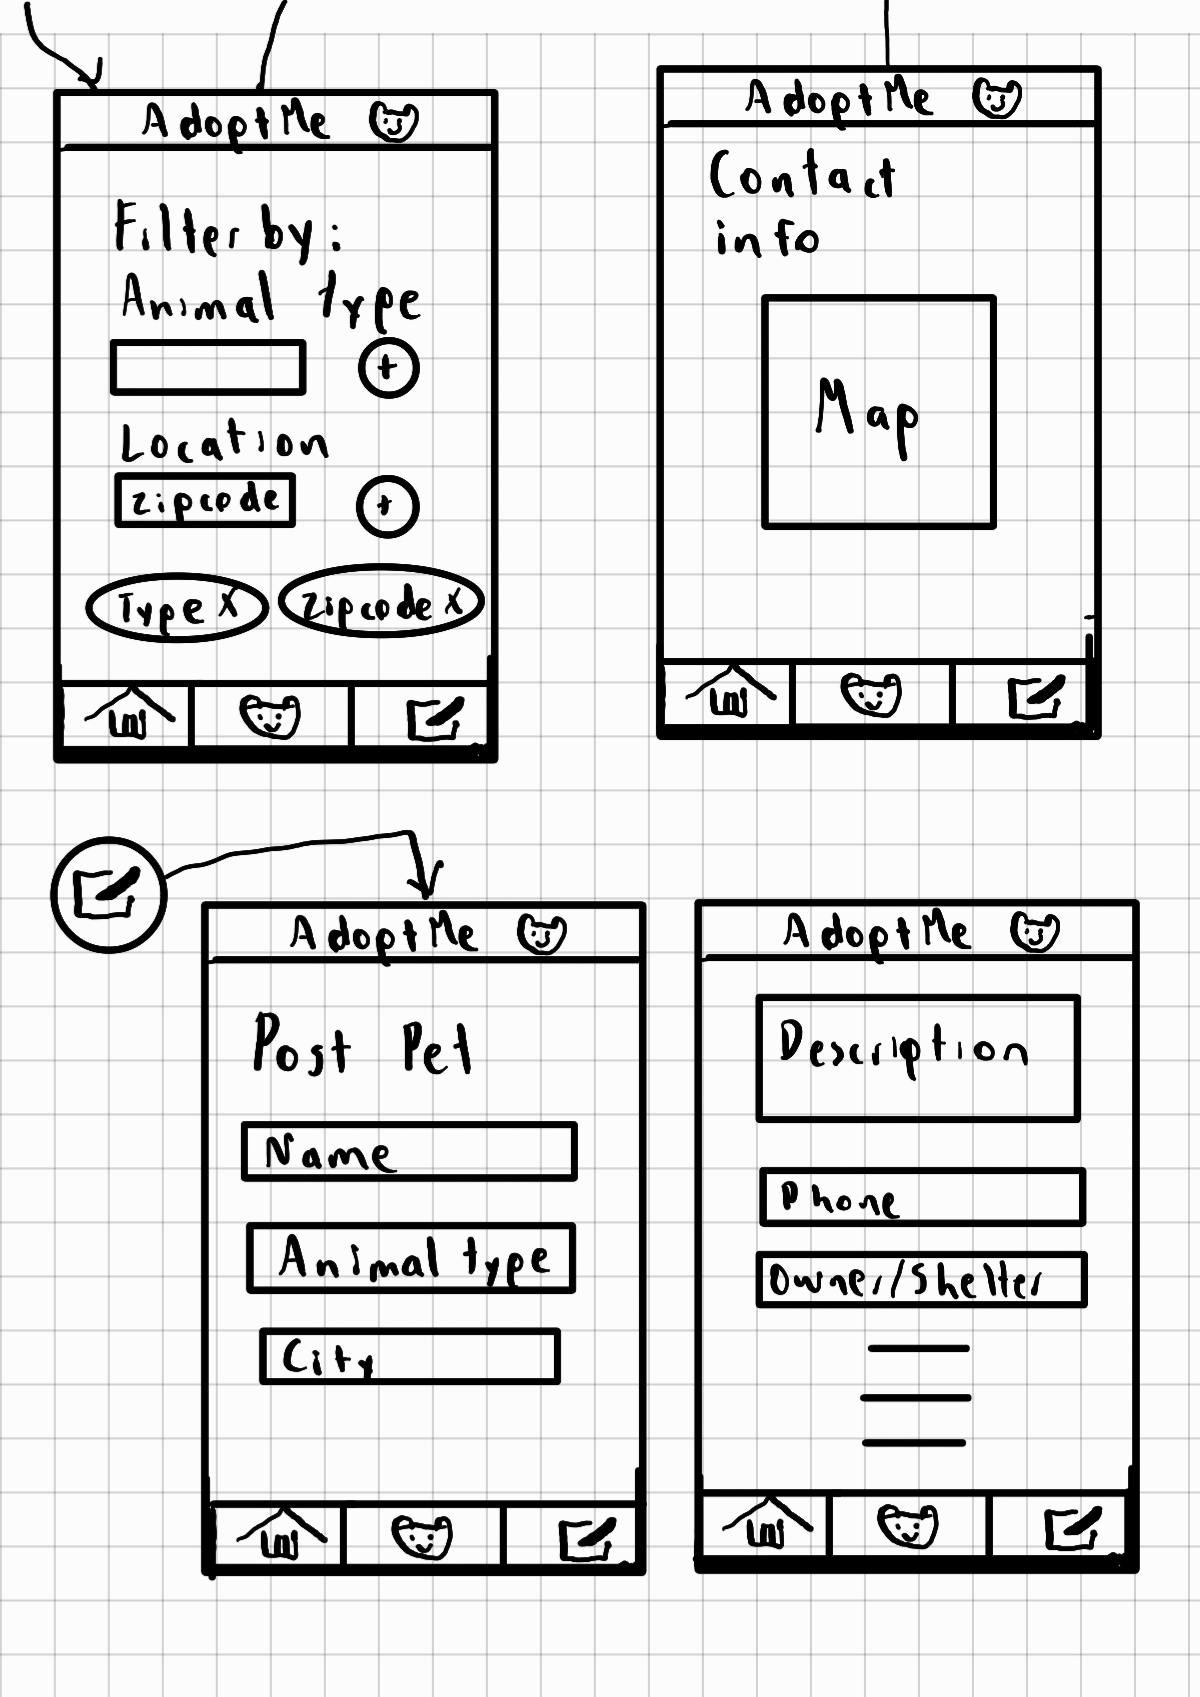 AdoptMe
Filter by:
Animal type
+
Location
zipcode
+
Type X
zipcode X
AdoptMe
Contact
info
Map
AdoptMe
Post Pet
Name
Animal type
City
AdoptMe
Description
Phone
Owner/Shelter